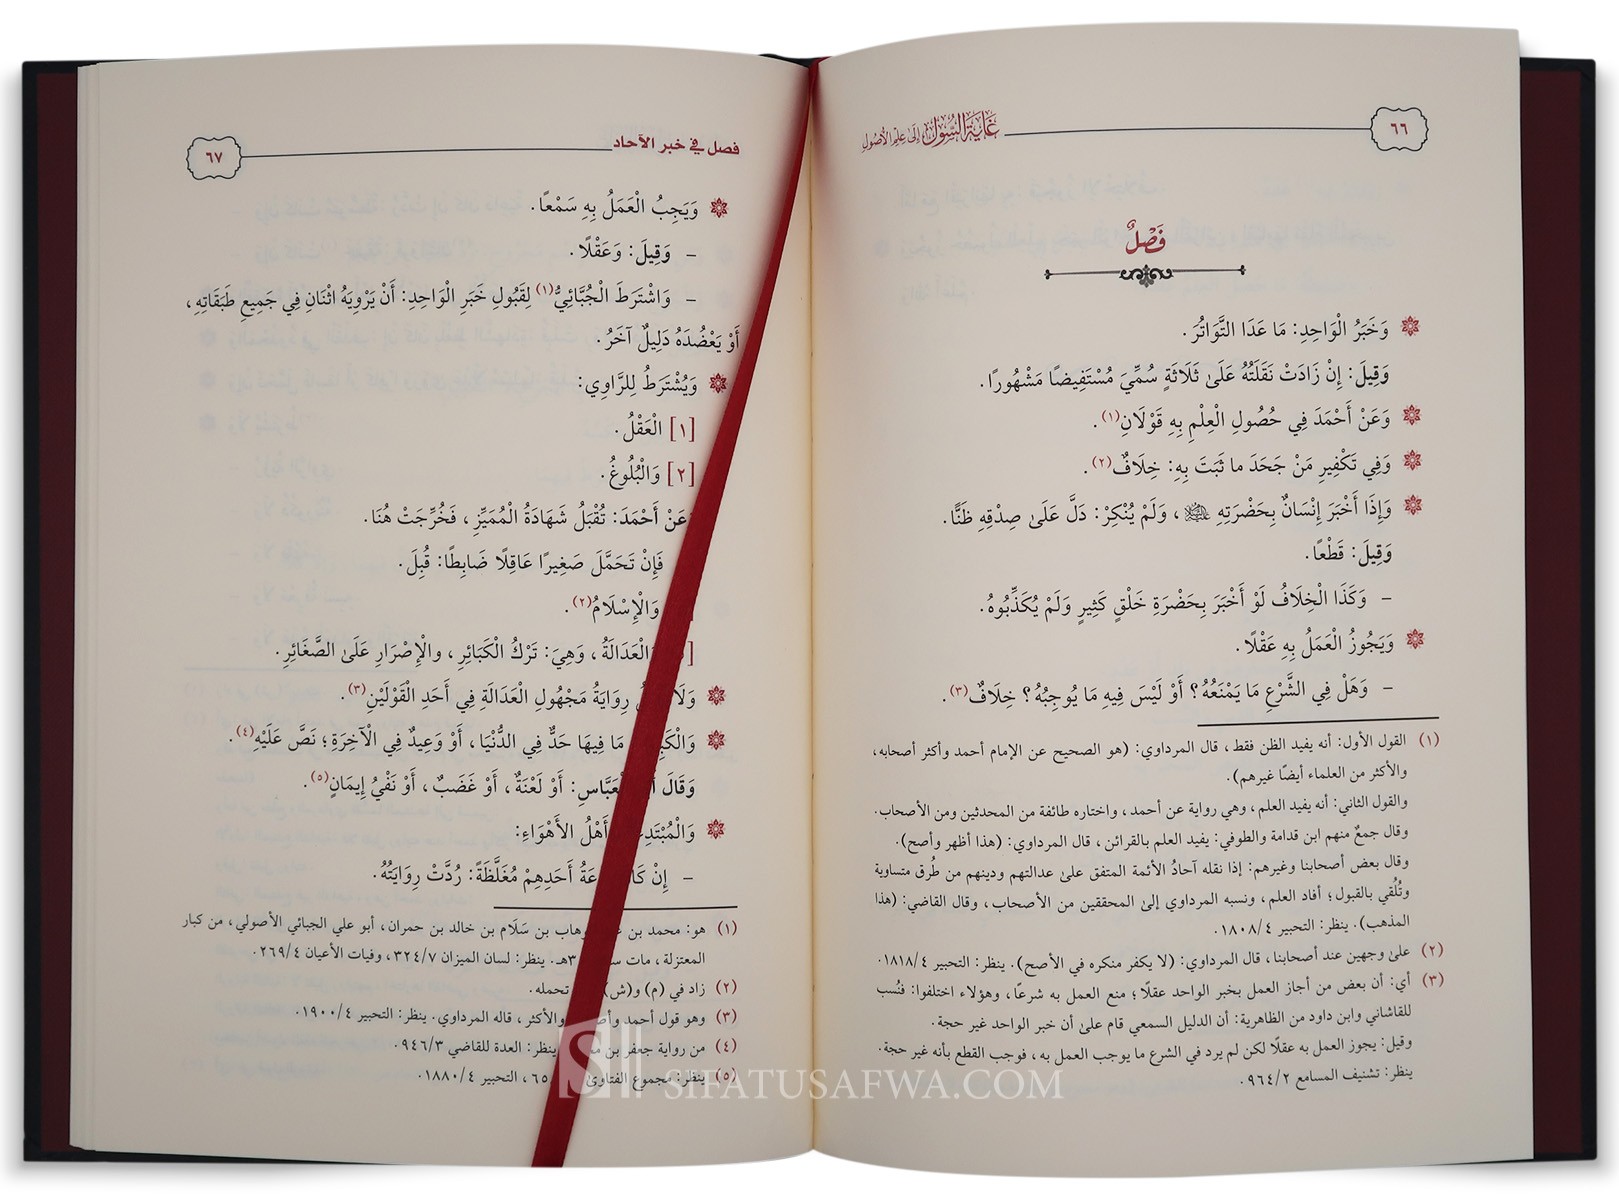 ٦٦
غاية السول إلى علم الأصول
فَصْلٌ
وَخَبَرُ الْوَاحِدِ: مَا عَدَا التَّوَاتُرَ.
وَقِيلَ: إِنْ زَادَتْ نَقَلَتُهُ عَلَىٰ ثَلَاثَةٍ سُمِّيَ مُسْتَفِيضًا مَشْهُورًا.
وَعَنْ أَحْمَدَ فِي حُصُولِ الْعِلْمِ بِهِ قَوْلَانِ(١).
وَفِي تَكْفِيرِ مَنْ جَحَدَ ما ثَبَتَ بِهِ: خِلَافٌ(٢).
وَإِذَا أَخْبَرَ إِنْسَانٌ بِحَضْرَتِهِ ﷺ، وَلَمْ يُنْكِرْ: دَلَّ عَلَىٰ صِدْقِهِ ظَنًّا.
وَقِيلَ: قَطْعًا.
– وَكَذَا الْخِلَافُ لَوْ أَخْبَرَ بِحَضْرَةِ خَلْقٍ كَثِيرٍ وَلَمْ يُكَذِّبُوهُ.
وَيَجُوزُ الْعَمَلُ بِهِ عَقْلًا.
– وَهَلْ فِي الشَّرْعِ مَا يَمْنَعُهُ؟ أَوْ لَيْسَ فِيهِ مَا يُوجِبُهُ؟ خِلَافٌ(٣).
(١) القول الأول: أنه يفيد الظن فقط، قال المرداوي: (هو الصحيح عن الإمام أحمد وأكثر أصحابه،
والأكثر من العلماء أيضًا غيرهم).
والقول الثاني: أنه يفيد العلم، وهي رواية عن أحمد، واختاره طائفة من المحدثين ومن الأصحاب.
وقال جمعٌ منهم ابن قدامة والطوفي: يفيد العلم بالقرائن، قال المرداوي: (هذا أظهر وأصح).
وقال بعض أصحابنا وغيرهم: إذا نقله آحادُ الأئمة المتفق علىٰ عدالتهم ودينهم من طُرق متساوية
وتُلُقي بالقبول؛ أفاد العلم، ونسبه المرداوي إلىٰ المحققين من الأصحاب، وقال القاضي: (هذا
المذهب). ينظر: التحبير ١٨٠٨/٤.
(٢) علىٰ وجهين عند أصحابنا، قال المرداوي: (لا يكفر منكره في الأصح). ينظر: التحبير ١٨١٨/٤.
(٣) أي: أن بعض من أجاز العمل بخبر الواحد عقلًا؛ منع العمل به شرعًا، وهؤلاء اختلفوا: فنُسب
للقاشاني وابن داود من الظاهرية: أن الدليل السمعي قام علىٰ أن خبر الواحد غير حجة.
وقيل: يجوز العمل به عقلًا لكن لم يرد في الشرع ما يوجب العمل به، فوجب القطع بأنه غير حجة.
ينظر: تشنيف المسامع ٩٦٤/٢.
فصل في خبر الآحاد
٦٧
وَيَجِبُ الْعَمَلُ بِهِ سَمْعًا.
– وَقِيلَ: وَعَقْلًا.
– وَاشْتَرَطَ الْجُبَّائِيُّ(١) لِقَبُولِ خَبَرِ الْوَاحِدِ: أَنْ يَرْوِيَهُ اثْنَانِ فِي جَمِيعِ طَبَقَاتِهِ،
أَوْ يَعْضُدَهُ دَلِيلٌ آخَرُ.
وَيُشْتَرَطُ لِلرَّاوِي:
[١] الْعَقْلُ.
[٢] وَالْبُلُوغُ.
عَنْ أَحْمَدَ: تُقْبَلُ شَهَادَةُ الْمُمَيِّزِ، فَخُرِّجَتْ هُنَا.
فَإِنْ تَحَمَّلَ صَغِيرًا عَاقِلًا ضَابِطًا: قُبِلَ.
وَالْإِسْلَامُ(٢).
وَالْعَدَالَةُ، وَهِيَ: تَرْكُ الْكَبَائِرِ، والْإِصْرَارِ عَلَىٰ الصَّغَائِرِ.
رِوَايَةُ مَجْهُولِ الْعَدَالَةِ فِي أَحَدِ الْقَوْلَيْنِ(٣).
مَا فِيهَا حَدٌّ فِي الدُّنْيَا، أَوْ وَعِيدٌ فِي الْآخِرَةِ؛ نَصَّ عَلَيْهِ(٤).
وَقَالَ الْعَبَّاسِ: أَوْ لَعْنَةٌ، أَوْ غَضَبٌ، أَوْ نَفْيُ إِيمَانٍ(٥).
أَهْلُ الأَهْوَاءِ:
– إِنْ أَحَدِهِمْ مُغَلَّظَةً: رُدَّتْ رِوَايَتُهُ.
(١) هو: محمد بن بن سَلَام بن خالد بن حمران، أبو علي الجبائي الأصولي، من كبار
المعتزلة، مات ينظر: لسان الميزان ٣٢٤/٧، وفيات الأعيان ٢٦٩/٤.
(٢) زاد في (م) و(ش) تحمله.
(٣) وهو قول أحمد والأكثر، قاله المرداوي. ينظر: التحبير ١٩٠٠/٤.
(٤) من رواية جعفر بن ينظر: العدة للقاضي ٩٤٦/٣.
(٥) ينظر: مجموع الفتاوىٰ التحبير ١٨٨٠/٤.
SIFATUSAFWA.COM